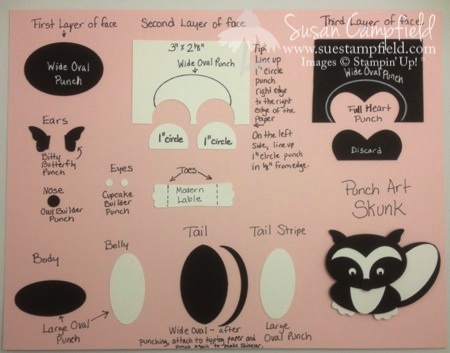 Susan Campfield
www.suestampfield.com
Images © Stampin' Up!
First Layer of face
Wide Oval
Punch
Second Layer of face
3" x 2 1/8"
Wide Oval Punch
1" circle
1" circle
Tip:
Line up
1" circle
punch
right edge
to the right
edge of the
Paper
On the left
Side, line up
1" circle punch
in 1/8" from edge.
Third Layer of face
Wide Oval Punch
Full Heart
Punch
Discard
Ears
Bitty
Butterfly
Punch
Nose
Owl Builder
Punch
Eyes
Cupcake
Builder
Punch
Toes
Modern
Lable
Punch Art
Skunk
Body
Belly
Large Oval
Punch
Tail
Wide Oval - after
punching, attach to typing paper and
punch again to make skinnier.
Tail Stripe
Large
Oval Punch